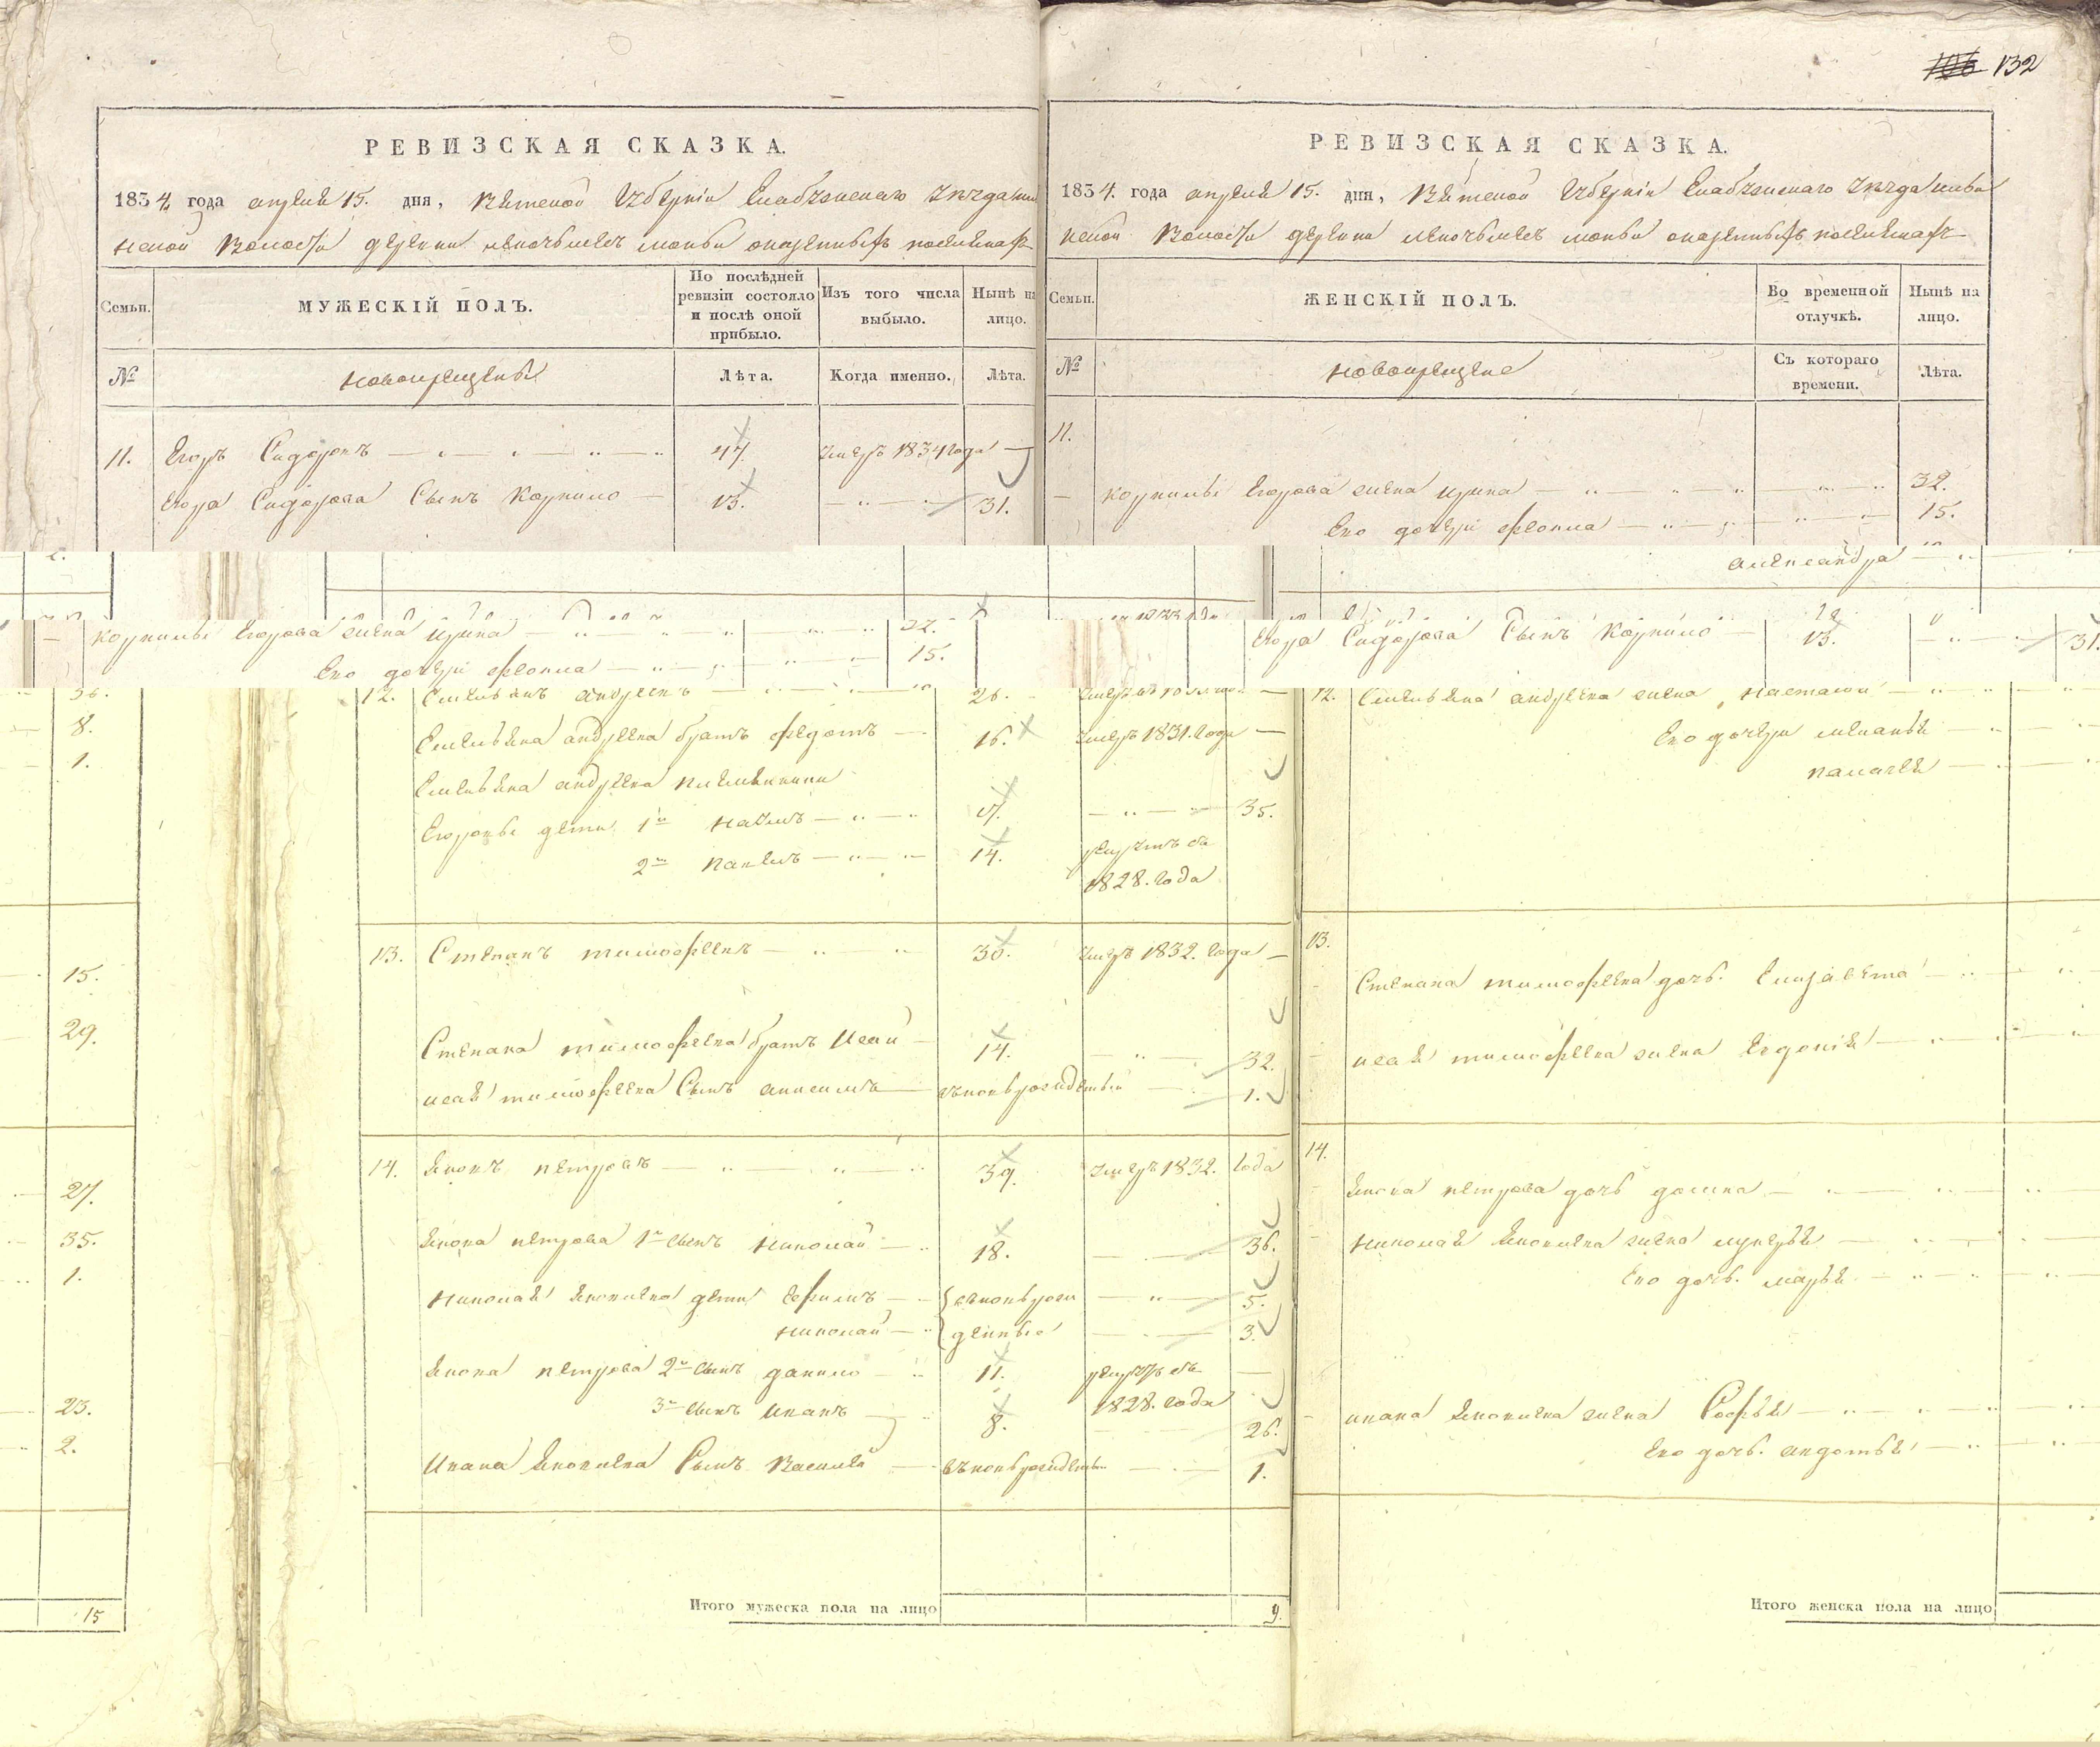 132
РЕВИЗСКАЯ СКАЗКА.
1834 года апреля 15. дня, Вятской Губернии Елабужскаго уезда
Волости деревни казенных поселенах
Семьи.
МУЖЕСКІЙ ПОЛЪ.
По послѣдней ревизіи состояло и послѣ оной прибыло.
Изъ того числа выбыло.
Нынѣ на лицо.
№
новокрещены
Лѣта.
Когда именно.
Лѣта.
11. Егоръ Сидоровъ 47. умеръ 1834 года
Егора Сидорова Сынъ Корнило 13. 31.
РЕВИЗСКАЯ СКАЗКА.
1834. года апреля 15. дня, Вятской Губернии Елабужскаго уезда
Волости деревни казенных поселенах
Семьи.
ЖЕНСКІЙ ПОЛЪ.
Во временной отлучкѣ.
Нынѣ на лицо.
№
новокрещене
Съ котораго времени.
Лѣта.
11.
Корнилы Егорова жена Ирина 32.
Его дочери Феокла 15.
александра
Корнилы Егорова жена Ирина 32.
Его дочери Феокла 15.
Егора Сидорова Сынъ Корнило 13. 31.
8.
1.
15.
29.
27.
35.
1.
23.
2.
15
12. Емельянъ андреевъ 26.
Емельяна андреева братъ федотъ 16. умеръ 1831. года
Емельяна андреева племянники
Егоровы дети 1й наумъ 17. 35.
2й павелъ 14. рекрутъ въ
1828. года
13. Степанъ тимофеевъ 30. умеръ 1832. года
Степана тимофеева братъ Исай 14. 32.
исая тимофеева Сынъ анисимъ вновьрожденный 1.
14. Яковъ петровъ 39. умеръ 1832. года
Якова петрова 1й сынъ николай 18. 36.
николая яковлева дети ефимъ вновьрож 5.
николай денные 3.
Якова петрова 2й сынъ данило 11. рекрутъ въ
3й сынъ иванъ 8. 1828. года 26.
Ивана яковлева Сынъ Василей вновьрожденный 1.
Итого мужеска пола на лицо 9.
12. Емельяна андреева жена настасья
Его дочери меланья
пелагея
13.
Степана тимофеева дочь. Елизавета
исая тимофеева жена Евдокия
14.
Якова петрова дочь домна
николая яковлева жена лукерья
Его дочь. марья
ивана яковлева жена Софья
Его дочь. авдотья
Итого женска пола на лицо